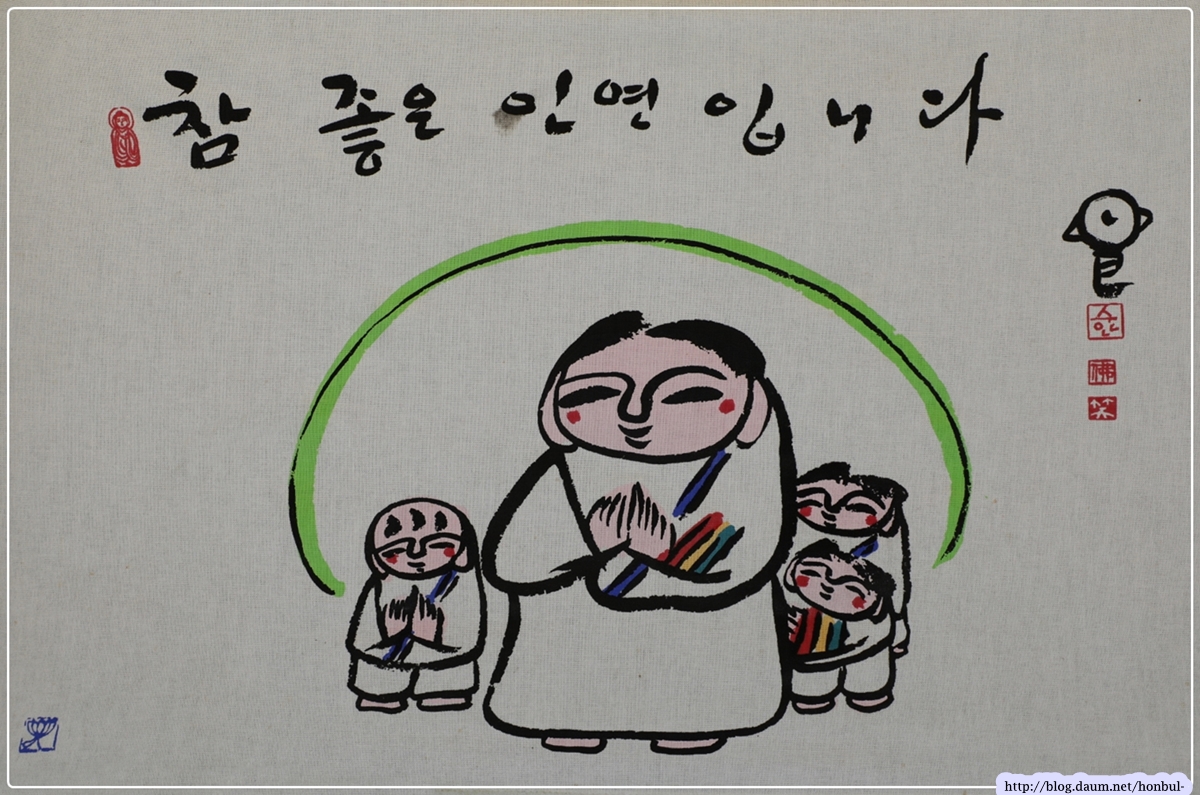 참 좋은 인연 입니다
佛
笑
http://blog.daum.net/honbul-